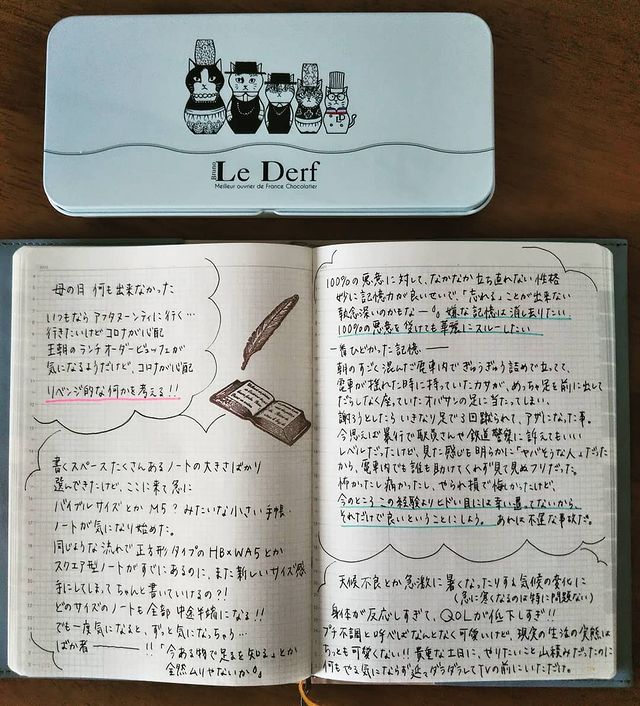 Bruno
Le Derf
Meilleur ouvrier de France Chocolatier
母の日 何も出来なかった
いつもなら アフタヌーンティに行く…
行きたいけど コロナが心配
王朝のランチオーダービュッフェが
気になるようだけど、コロナが心配
リベンジ的な何かを考える!!
書くスペースたくさんあるノートの大きさばかり
選んできたけど、ここに来て急に
バイブルサイズとか M5? みたいな小さい手帳
ノートが気になり始めた。
同じような流れで正方形タイプのHB×WA5とか
スクエア型ノートがすでにあるのに、また新しいサイズ感
手にしてしまってちゃんと書いていけるの?!
どのサイズのノートも全部 中途半端になる!!
でも一度気になると、ずっと気になっちゃう…
ばか者ー!!「今ある物で足るを知る」とか
全然ムリやないか。
100%の悪意に対して、なかなか立ち直れない性格
妙に記憶力が良いせいで、「忘れる」ことが出来ない
執念深いのかもなー。嫌な記憶は消し去りたい
100%の悪意を受けても華麗にスルーしたい
一番ひどかった記憶——
朝のすごく混んだ電車内でぎゅうぎゅう詰めで立ってて、
電車が揺れた時に持っていたカサが、めっちゃ足を前に出して
だらしなく座っていたオバサンの足に当たってしまい、
謝ろうとしたら いきなり足で3回蹴られて、アザになった事。
今思えば暴行で駅員さんや鉄道警察に訴えてもいい
レベルだったけど、見た感じも明らかに「ヤバそうな人」だった
から、電車内でも誰も助けてくれず見て見ぬフリだった。
怖かったし痛かったし、やられ損で悔しかったけど、
今のところこの経験よりヒドい目には幸い遭ってないから、
それだけで良いということにしよう。 あれは不運な事故だ。
天候不良とか急激に暑くなったりする気候の変化に
(急に寒くなるのは特に問題ない)
身体が反応しすぎて、QOLが低下しすぎ!!
プチ不調と呼べばなんとなく可愛いけど、現実の生活の実態は
ちっとも可愛くない!! 貴重な土日に、やりたいこと山積みだったのに
何もやる気にならず延々ダラダラしてTVの前にいただけ。